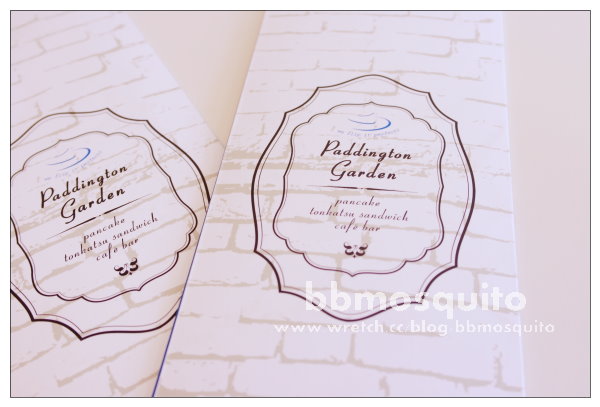 Paddington
Garden
pancake
tonkatsu sandwich
café bar
Paddington
Garden
pancake
tonkatsu sandwich
café bar
bbmosquito
www.wretch.cc blog bbmosquito